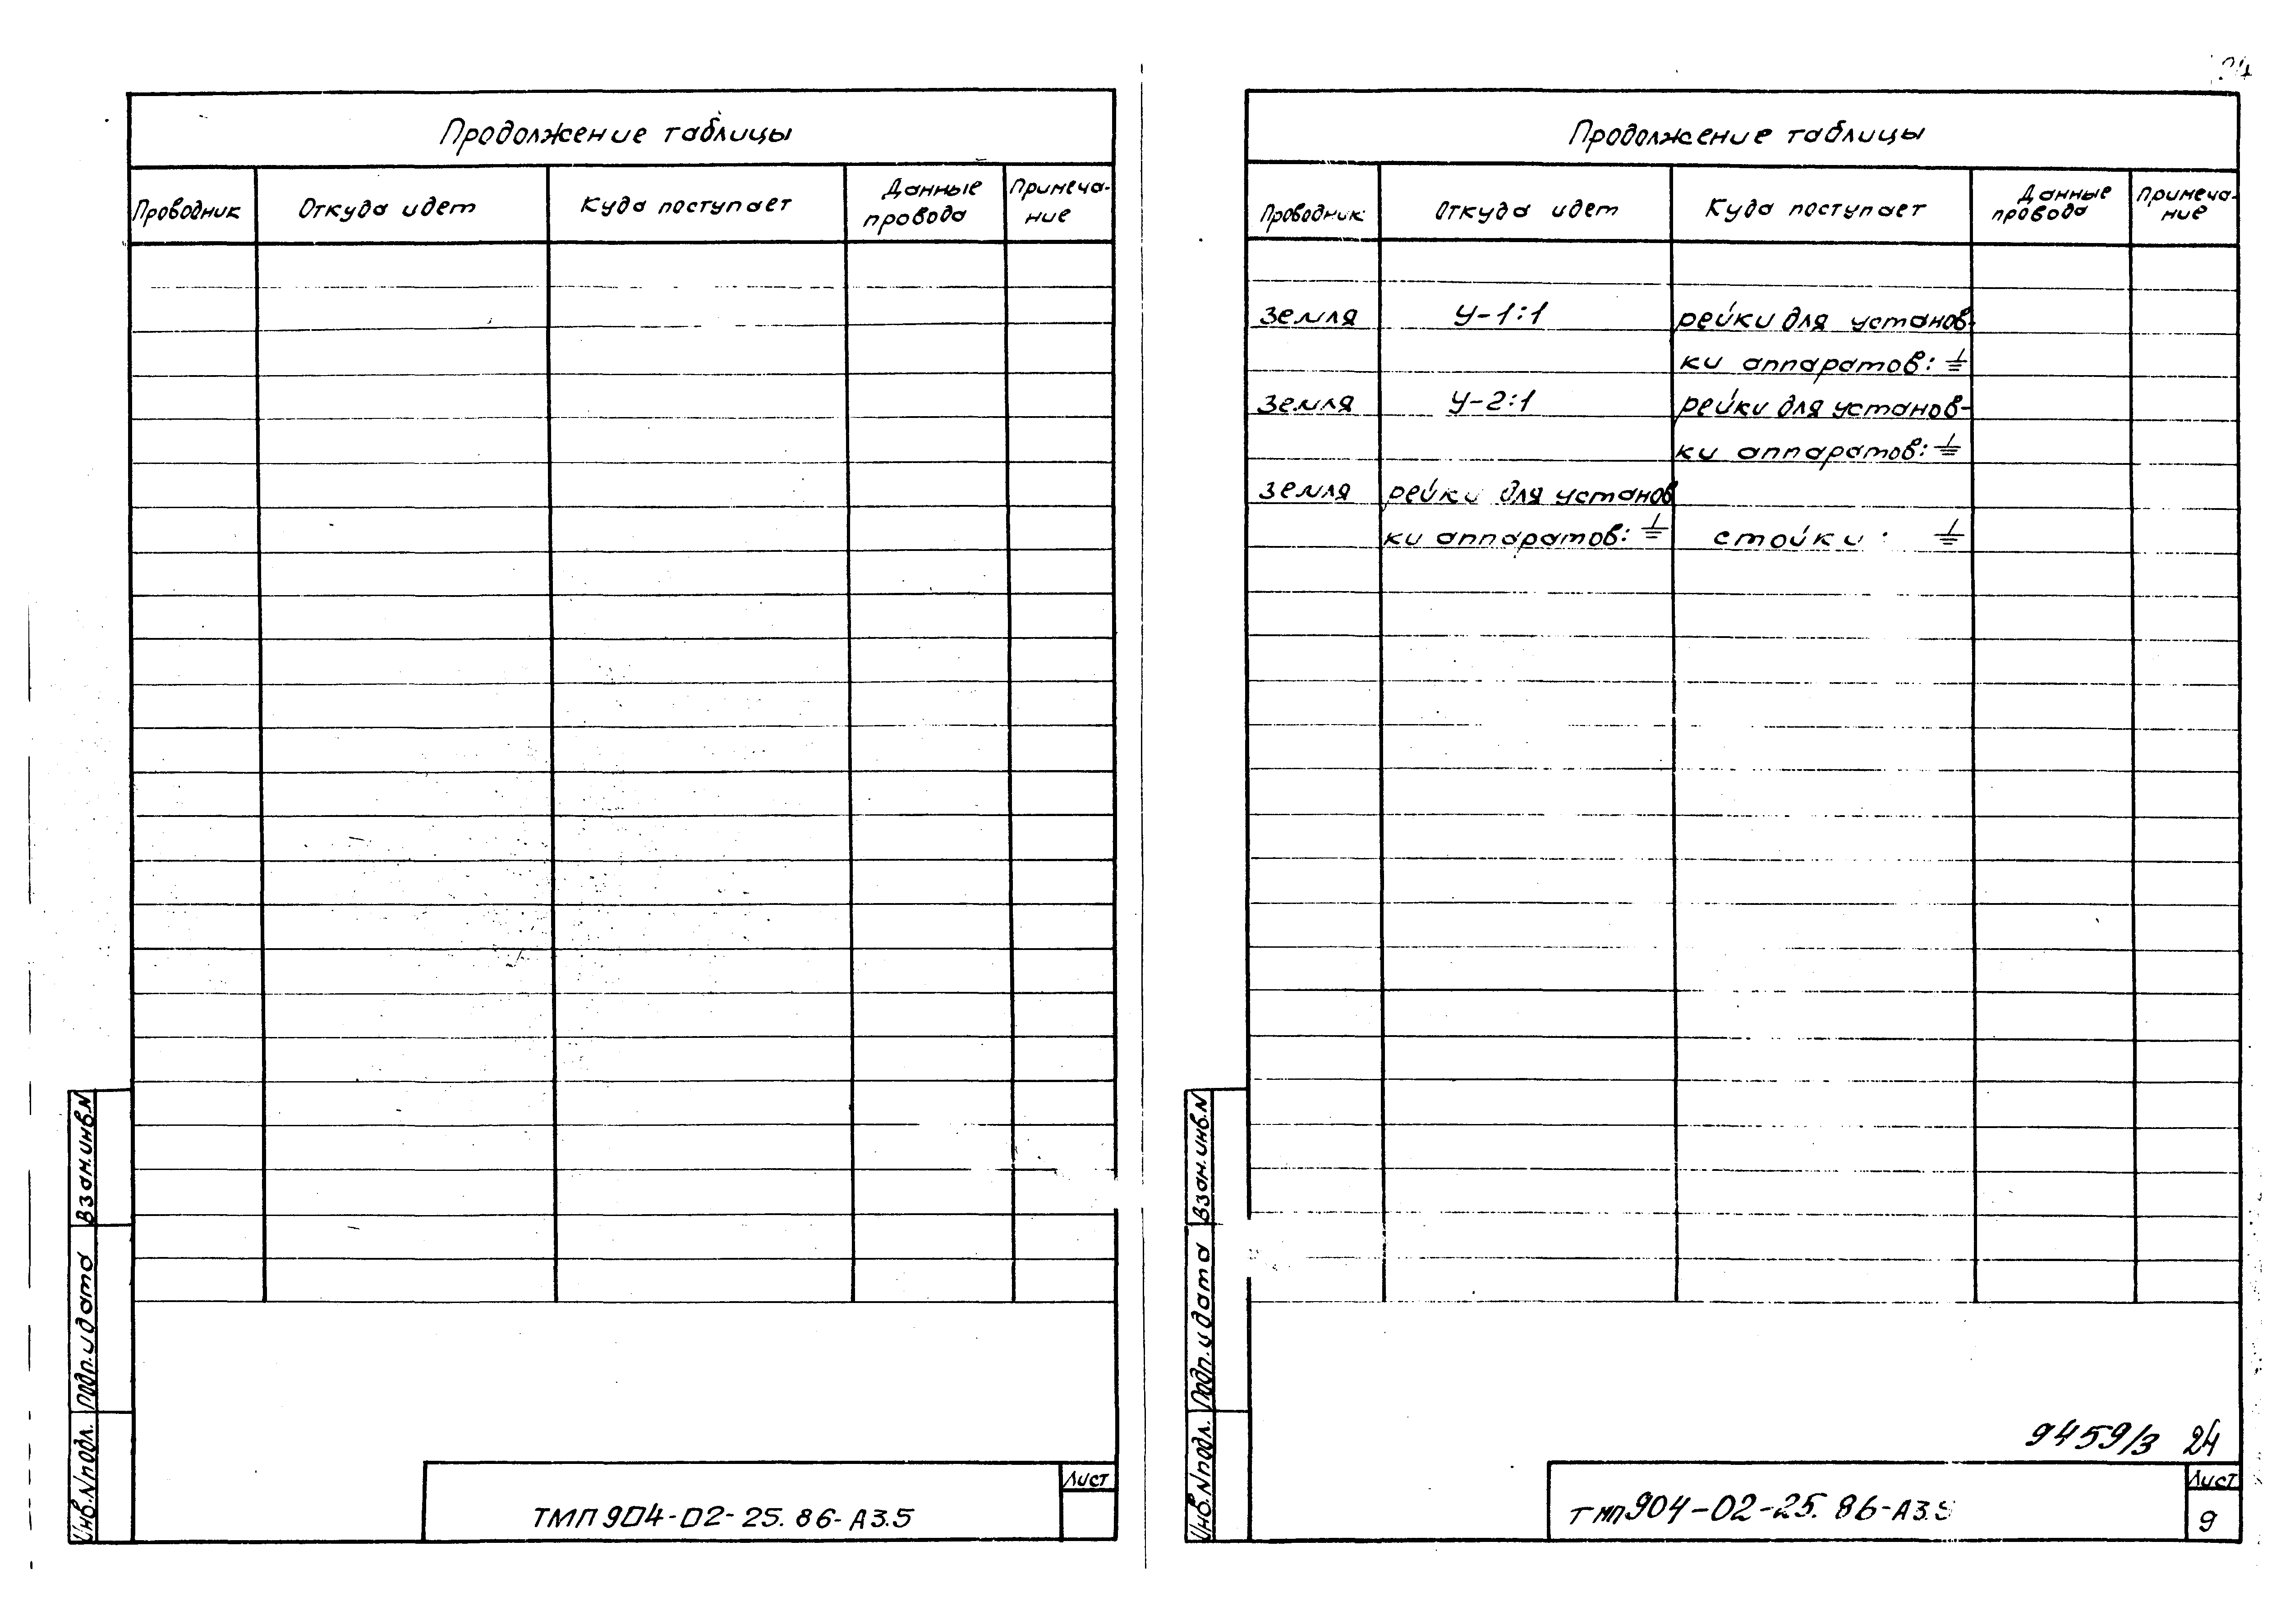 Продолжение таблицы
Проводник Откуда идет Куда поступает Данные провода Примеча-ние
Взам.инв.N
Подп. и дата
Инв.N подл.
ТМП 904-02-25.86-А3.5
Лист
Продолжение таблицы
Проводник Откуда идет Куда поступает Данные провода Примеча-ние
Земля У-1:1 рейки для установ-
ки аппаратов: ⏚
Земля У-2:1 рейки для установ-
ки аппаратов: ⏚
Земля рейки для установ
ки аппаратов: ⏚ стойки: ⏚
Взам.инв.N
Подп. и дата
Инв.N подл.
9459/3 24
ТМП 904-02-25.86-А3.5
Лист
9